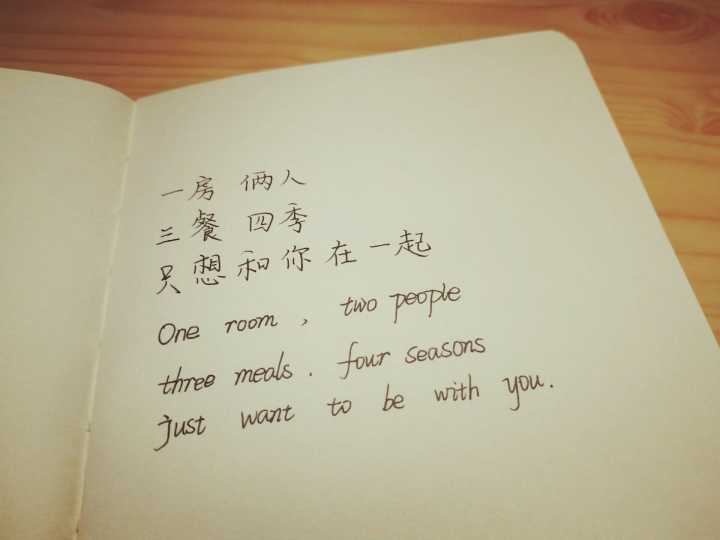 一房 俩人
三餐 四季
只想和你在一起
One room , two people
three meals . four seasons
just want to be with you.